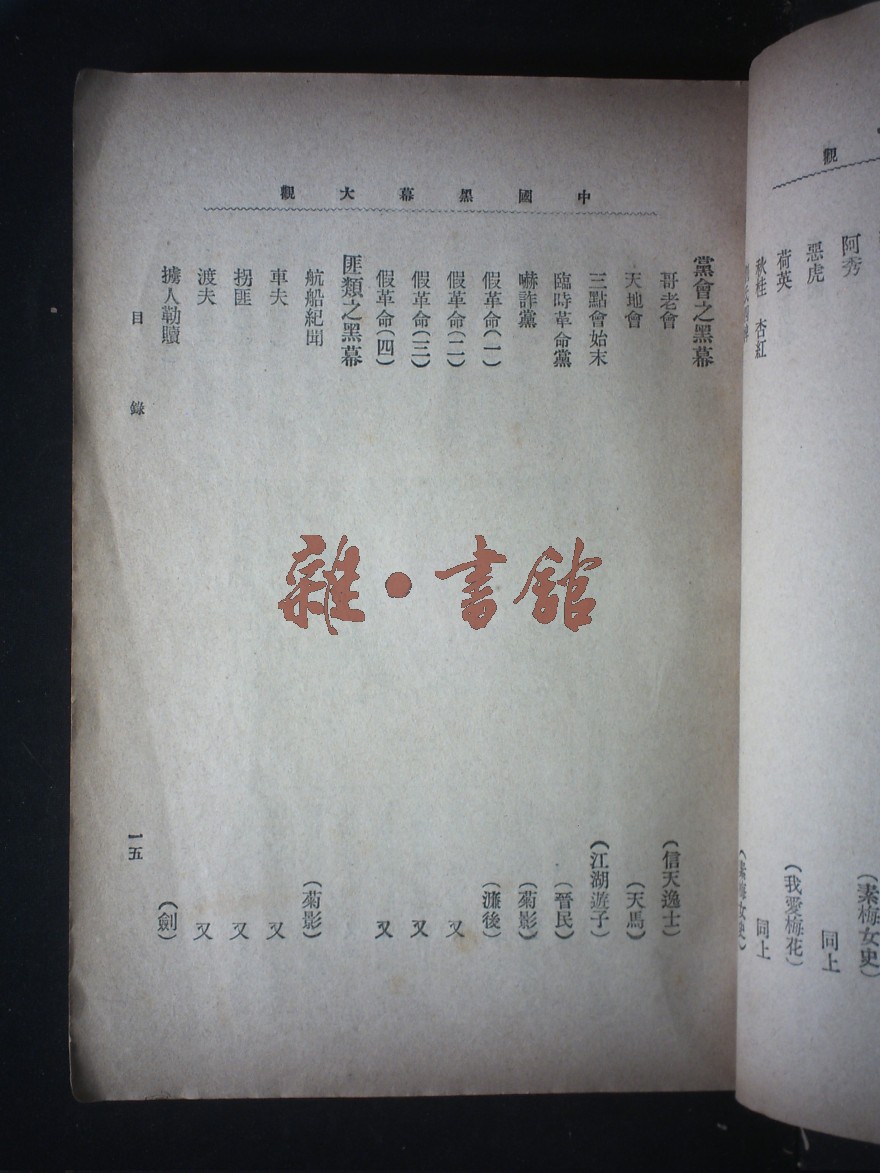 中國黑幕大觀
黨會之黑幕
哥老會 (信天逸士)
天地會 (天馬)
三點會始末 (江湖遊子)
臨時革命黨 (晉民)
嚇詐黨 (菊影)
假革命(一) (濂後)
假革命(二) 又
假革命(三) 又
假革命(四) 又
匪類之黑幕
航船紀聞 (菊影)
車夫 又
拐匪 又
渡夫 又
擄人勒贖 (劍)
目錄
一五
雜·書館
觀
阿秀 (素梅女史)
惡虎 同上
荷英 (我愛梅花)
秋桂 杏紅 同上